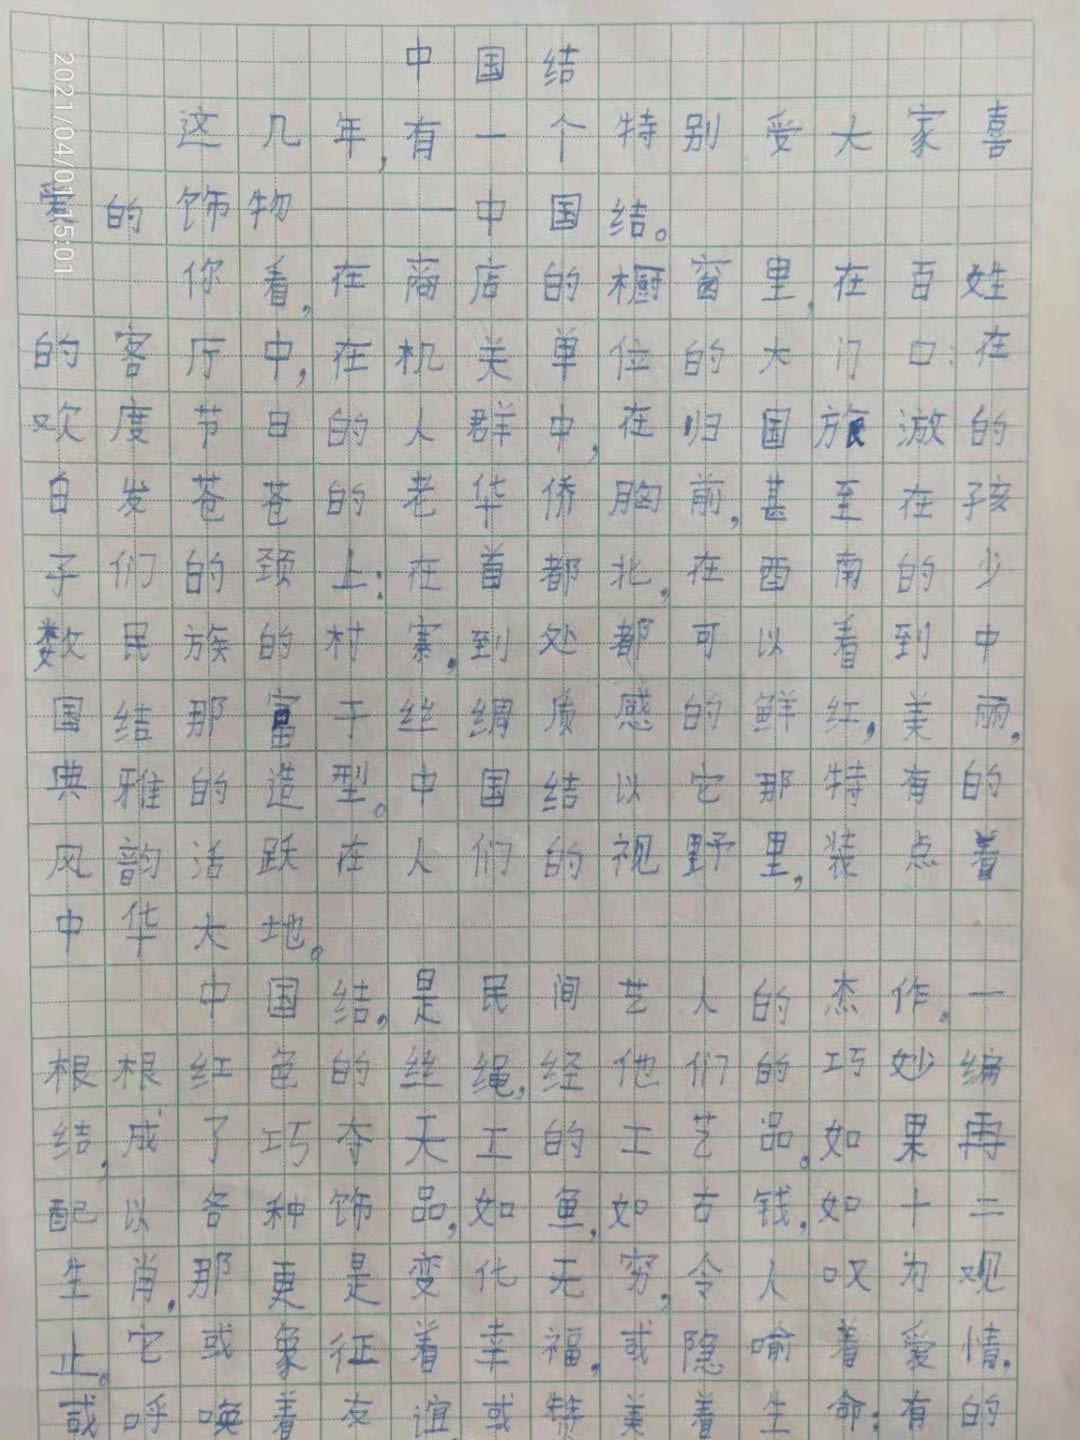 中国结
这几年,有一个特别受大家喜
爱的饰物——中国结。
你看,在商店的橱窗里,在百姓
的客厅中,在机关单位的大门口;在
欢度节日的人群中,在归国旅游的
白发苍苍的老华侨胸前,甚至在孩
子们的颈上;在首都北,在西南的少
数民族的村寨,到处都可以看到中
国结那富于丝绸质感的鲜红,美丽,
典雅的造型。中国结以它那特有的
风韵活跃在人们的视野里,装点着
中华大地。
中国结,是民间艺人的杰作。一
根根红色的丝绳,经他们的巧妙编
结,成了巧夺天工的工艺品。如果再
配以各种饰品,如鱼,如古钱,如十二
生肖,那更是变化无穷,令人叹为观
止。它或象征着幸福,或隐喻着爱情,
或呼唤着友谊,或赞美着生命;有的
2021/04/01 15:01